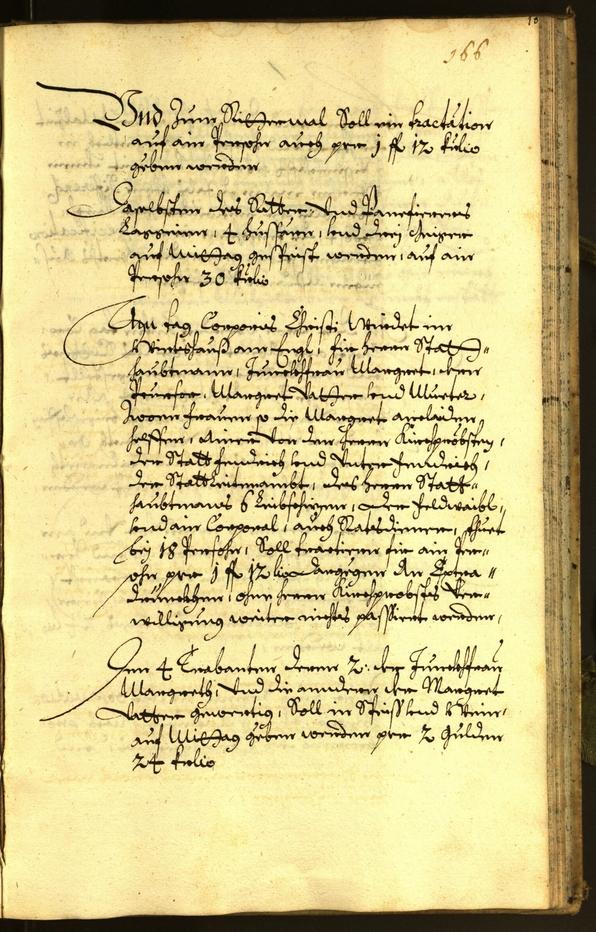 166
Und Zum Rittermal Soll ein tractation
auf ain Persohn auch per 1 fl 12 kr
geben werden
Daselbsten des Ritter und
4 Hussären, und drei
auf Mittag gespeist werden, auf ain
Persohn 30 kr
Am tag Corporis Christi Würdet im
Würtshauß am Engl, für herrn Statt=
haubtmann, Junckhfrau Margret, dern
Margret Vatter und Muetter,
Zwoen frauen so die Margret anclaiden
helffen, ainem von den herrn Kirchpröbsten,
der Stattfendrich und Unterfendrich,
der Stattleitenambt, des herrn Statt=
haubtmans 6 Leibschizen, der Feldwaibl,
und ain Corporal, auch Ratsdiener, thuet
bei 18 Persohn, Soll tractiern für ain Per=
sohn per 1 fl 12 dargegen der Extra
ohne herrn Kirchprobstes Ver=
willigung weiter nichts passiert werden,
Den 4 Trabanten deren 2: der Junckhfrau
Margreth, und die anndern der Margret
Vatter gewertig, Soll in Speiß und Wein,
auf Mittag geben werden per 2 Gulden
24 kr